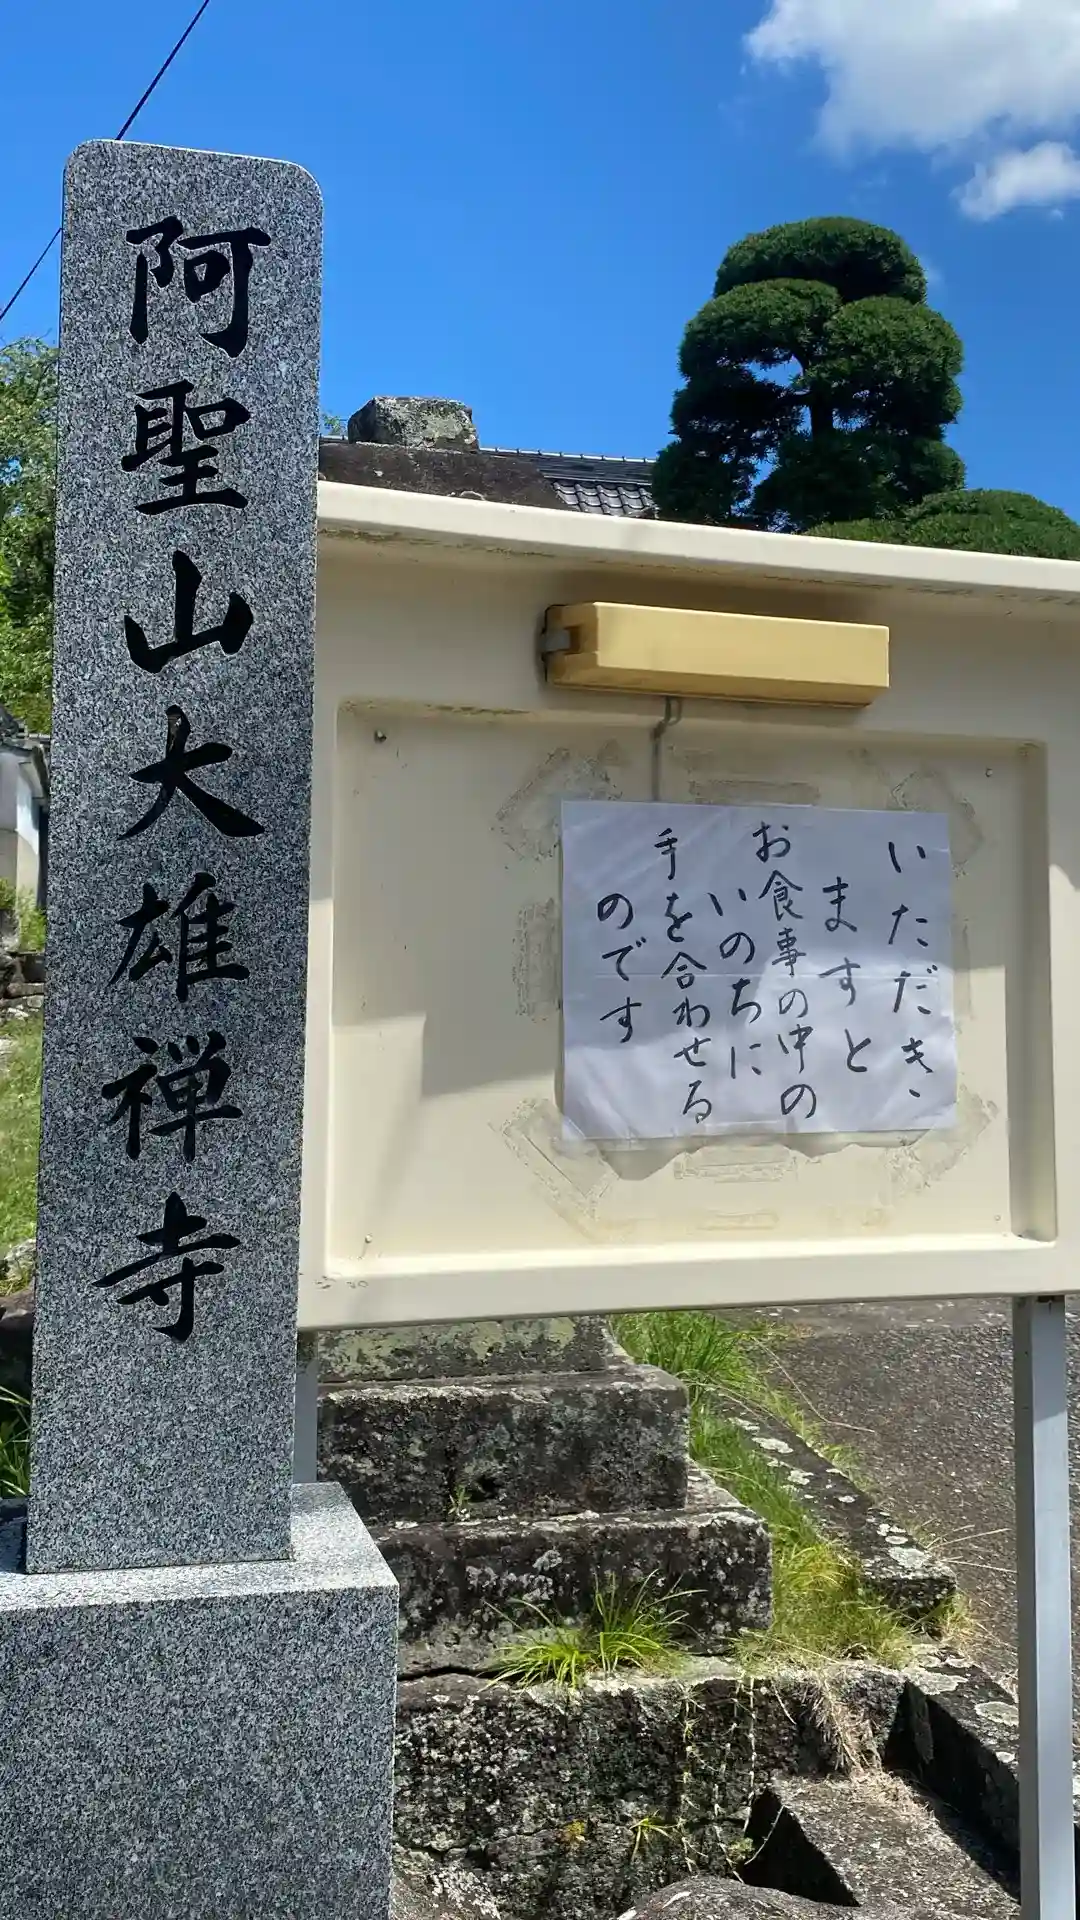 阿聖山大雄禅寺
いただき、
ますと
お食事の中の
いのちに
手を合わせる
のです